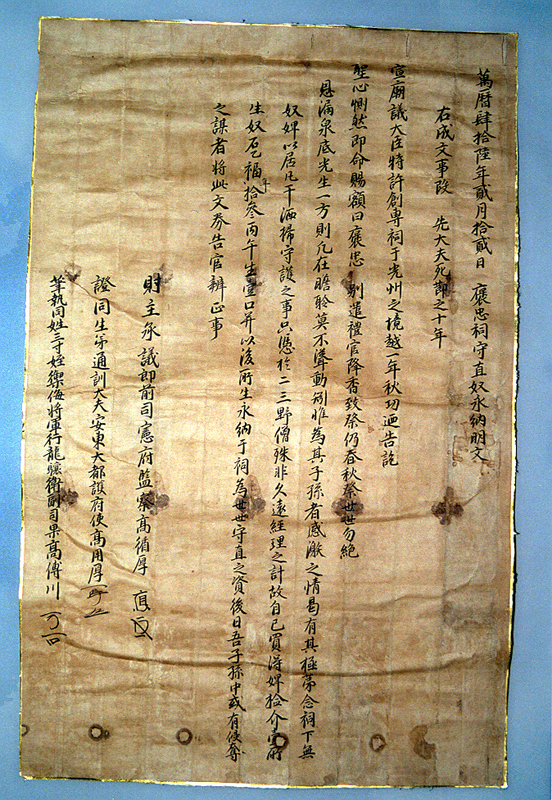 萬曆肆拾陸年貳月拾貳日 褒忠祠守直奴永納明文
右成文事段 先大夫死節之十年
宣廟議大臣特許創專祠于光州之境越一年秋功迺告訖
聖心惻然即命賜額曰褒忠 別遣禮官降香致祭仍春秋祭世世勿絶
恩漏泉底光生一方則凡在瞻聆莫不聳動矧惟爲其子孫者感激之情曷有其極第念祠下無
奴婢以居凡干洒掃守護之事只憑於二三野僧殊非久遠經理之計故自己買得婢拾介壹所
生奴石乞福年拾叄丙午生壹口并以後所生永納于祠爲世世守直之資後日吾子孫中或有侵奪
之謀者將此文券告官辨正事
財主承議郎前司憲府監察高循厚
證同生弟通訓大夫安東大都護府使高用厚
筆執同姓三寸姪禦侮將軍行龍驤衛副司果高傅川